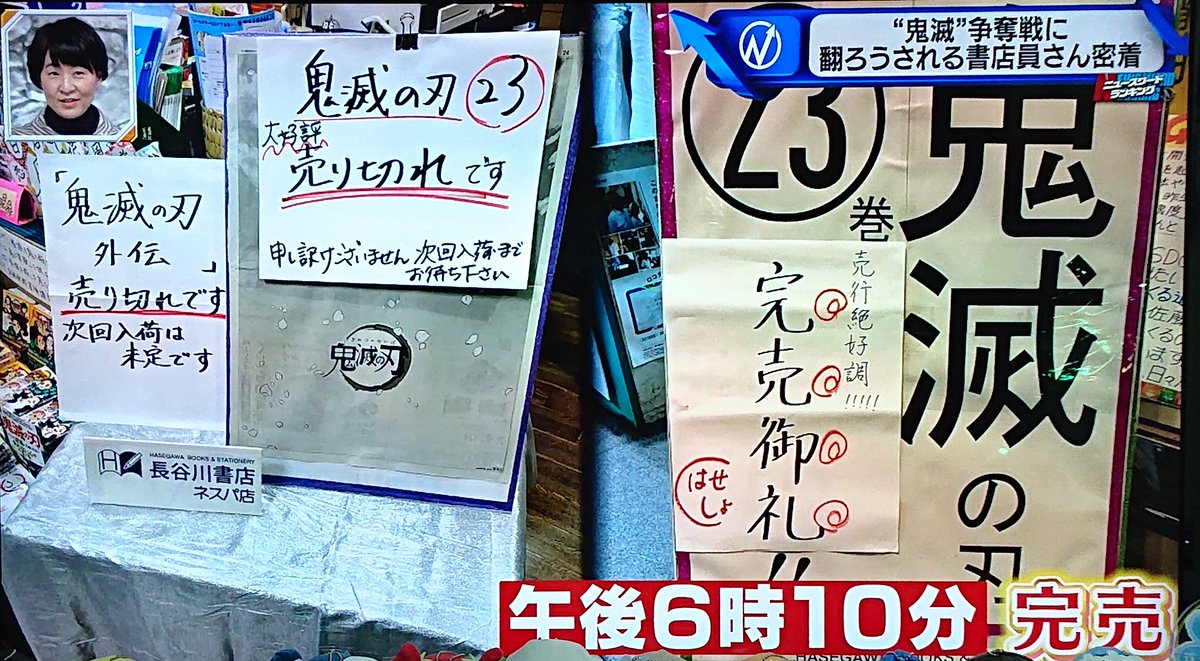 "鬼滅"争奪戦に
翻ろうされる書店員さん密着
ニュースワード
ランキング
鬼滅の刃 23
大好評
売り切れです
申し訳ございません 次回入荷まで
お待ち下さい
鬼滅の刃
「鬼滅の刃
外伝」
売り切れです
次回入荷は
未定です
HASEGAWA BOOKS & STATIONERY
長谷川書店
ネスパ店
鬼滅の刃
23
巻
売行絶好調!!!!!
完売御礼!!
はせ
しょ
午後6時10分
完売
HASEGAWA BOOKS &